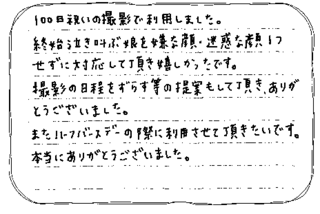 100日祝いの撮影で利用しました。
終始泣き叫ぶ娘を嫌な顔・迷惑な顔1つ
せずに対応して頂き嬉しかったです。
撮影の日程をずらす等の提案もして頂き、ありが
とうございました。
またハーフバースデーの際に利用させて頂きたいです。
本当にありがとうございました。